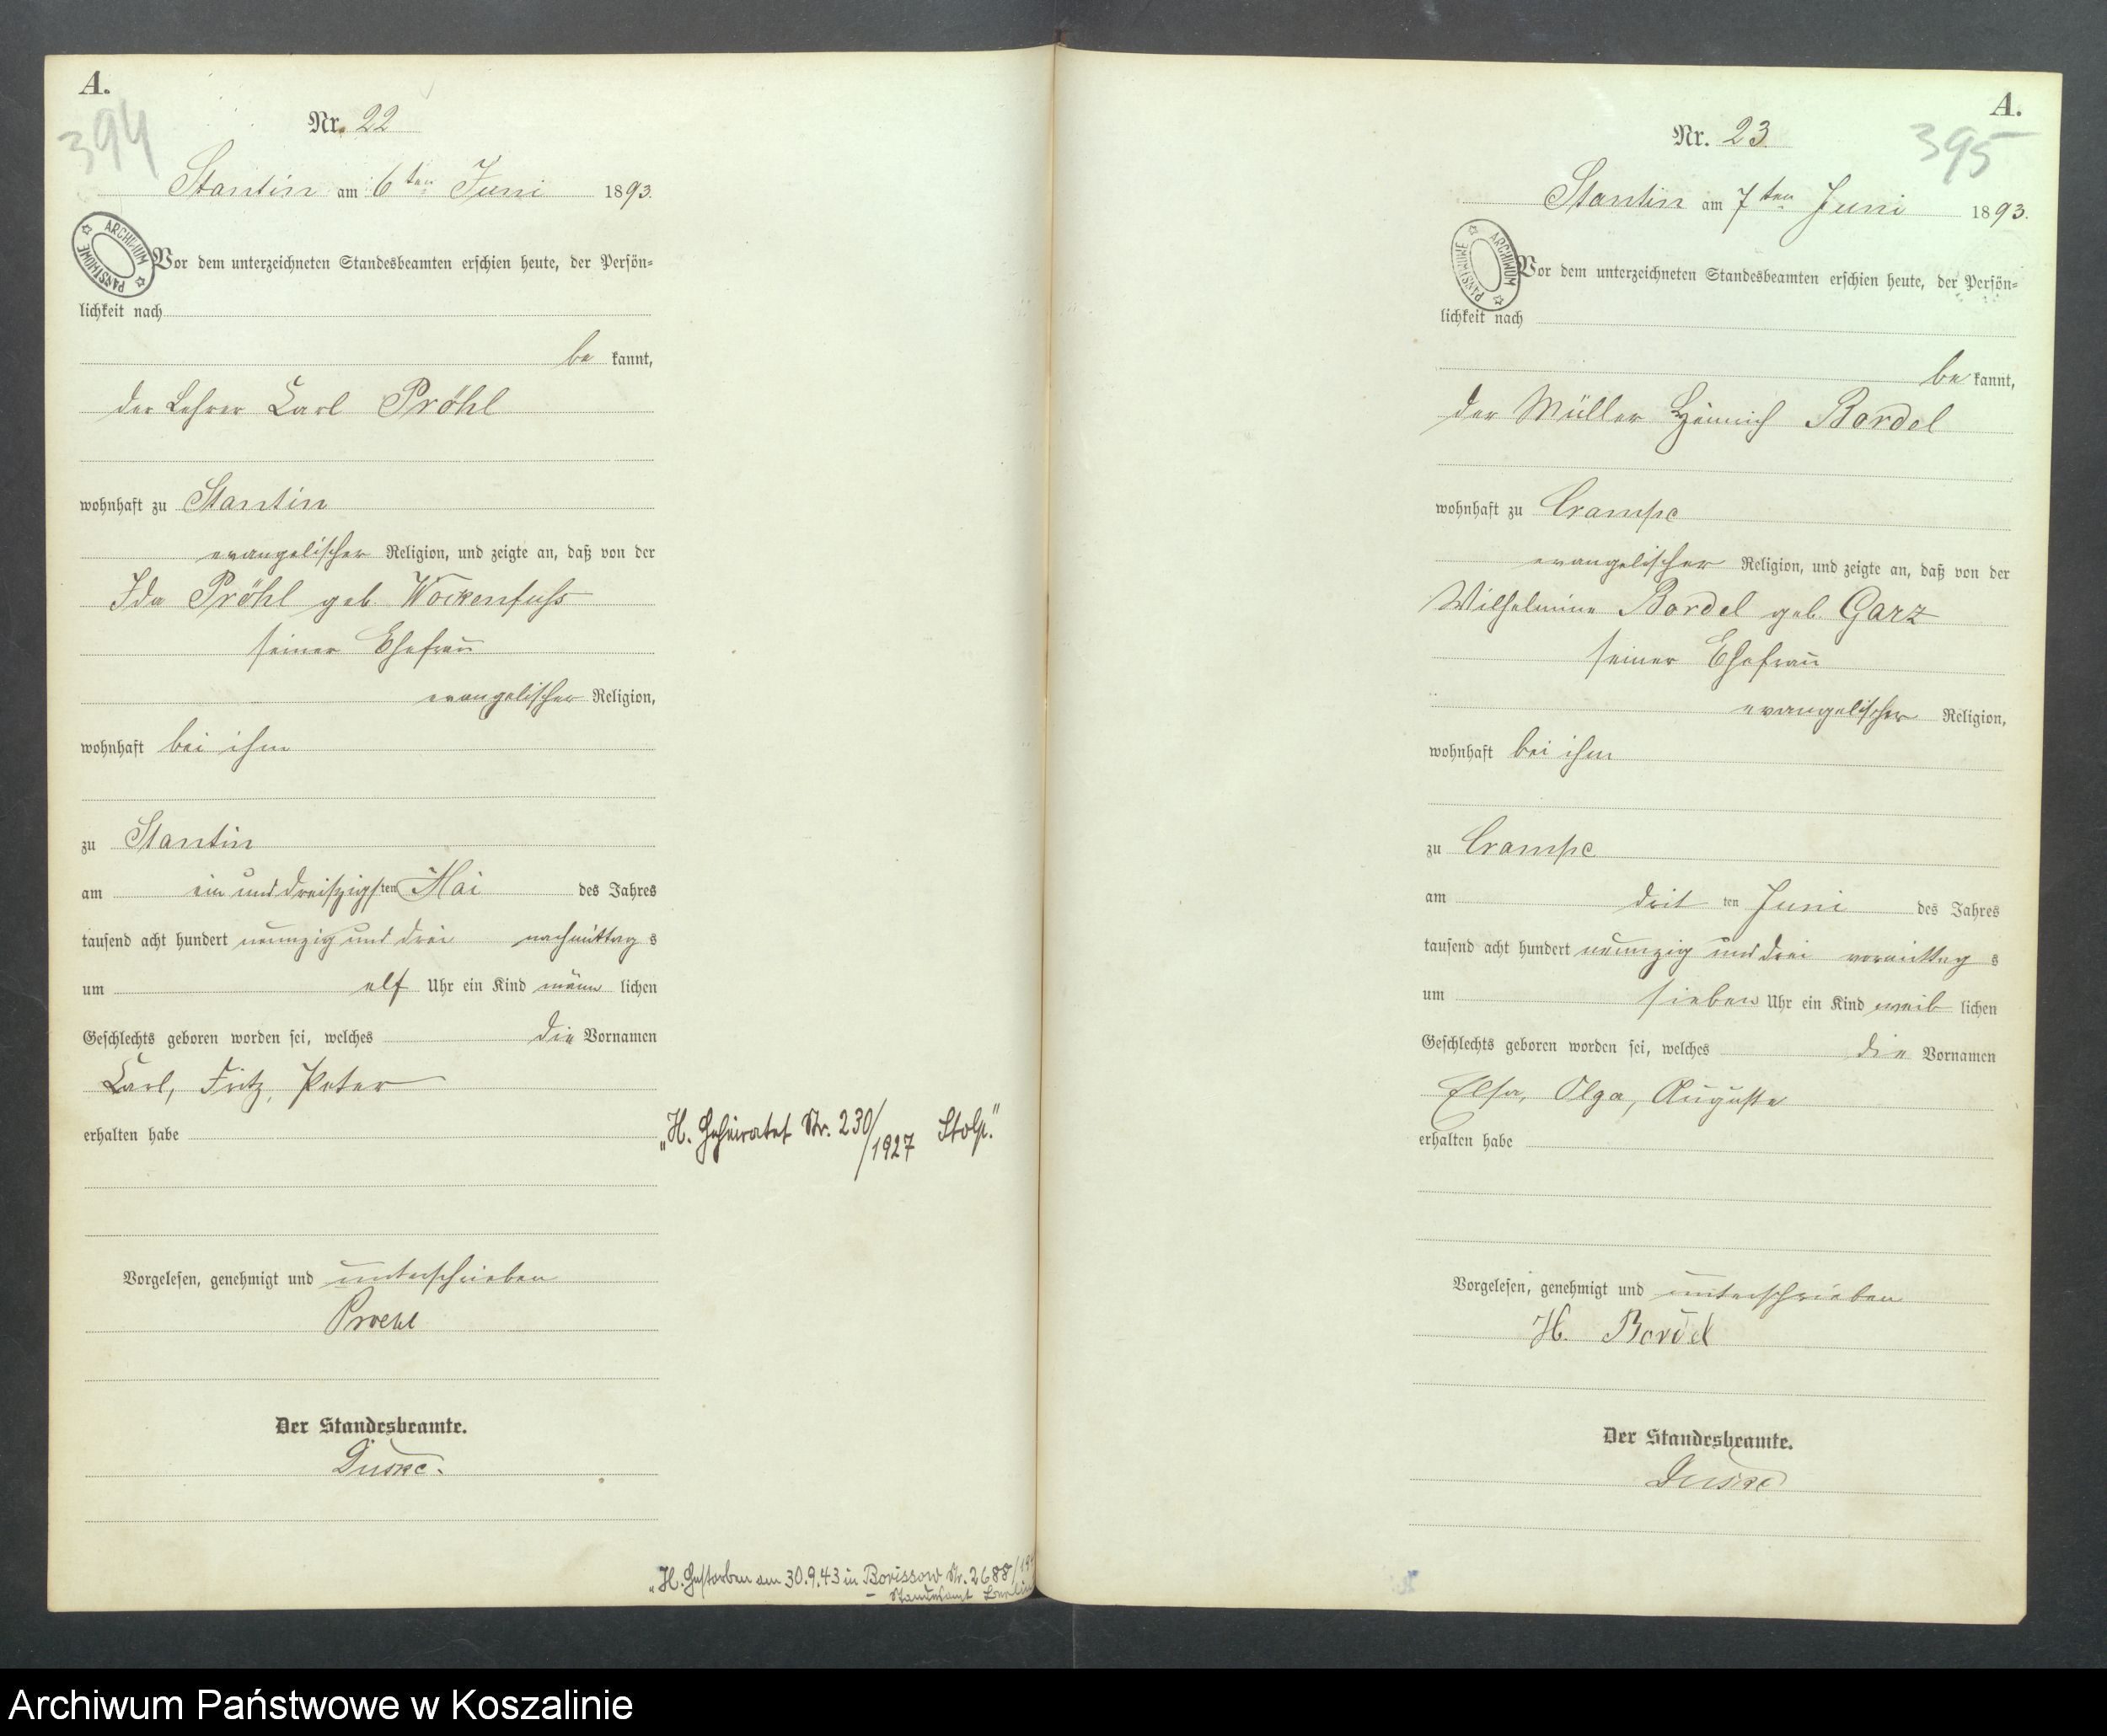 A.
394
Nr. 22
Stantin am 6ten Juni 1893.
ARCHIWUM PAŃSTWOWE
Vor dem unterzeichneten Standesbeamten erschien heute, der Persön=
lichkeit nach
be kannt,
der Lehrer Carl Pröhl
wohnhaft zu Stantin
evangelischer Religion, und zeigte an, daß von der
Ida Pröhl geb. Wockenfuss
seiner Ehefrau
evangelischer Religion,
wohnhaft bei ihm
zu Stantin
am ein und dreiszigsten Mai des Jahres
tausend acht hundert neunzig und drei nachmittag s
um elf Uhr ein Kind männ lichen
Geschlechts geboren worden sei, welches die Vornamen
Carl, Fritz, Peter
erhalten habe
„H. Geheiratet Nr. 230/1927 Stolp."
Vorgelesen, genehmigt und unterschrieben
Proehl
Der Standesbeamte.
Duske.
„H. Gestorben am 30.9.43 in Borissow Nr. 2688/19
– Standesamt Berlin
A.
395
Nr. 23
Stantin am 7ten Juni 1893.
ARCHIWUM PAŃSTWOWE
Vor dem unterzeichneten Standesbeamten erschien heute, der Persön=
lichkeit nach
be kannt,
der Müller Heinrich Bordel
wohnhaft zu Crampe
evangelischer Religion, und zeigte an, daß von der
Wilhelmine Bordel geb. Garz
seiner Ehefrau
evangelischer Religion,
wohnhaft bei ihm
zu Crampe
am drit ten Juni des Jahres
tausend acht hundert neunzig und drei vormittag s
um sieben Uhr ein Kind weib lichen
Geschlechts geboren worden sei, welches die Vornamen
Elsa, Olga, Auguste
erhalten habe
Vorgelesen, genehmigt und unterschrieben
H. Bordel
Der Standesbeamte.
Duske
Archiwum Państwowe w Koszalinie